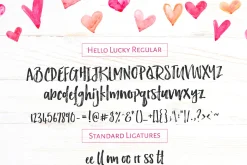 Hello Lucky Regular
ABCDEFGHIJKLMNOPQRSTUVWXYZ
abcdefghijklmnopqrstuvwxyz
1234567890
Standard Ligatures
ee ll nn oo rr ss tt